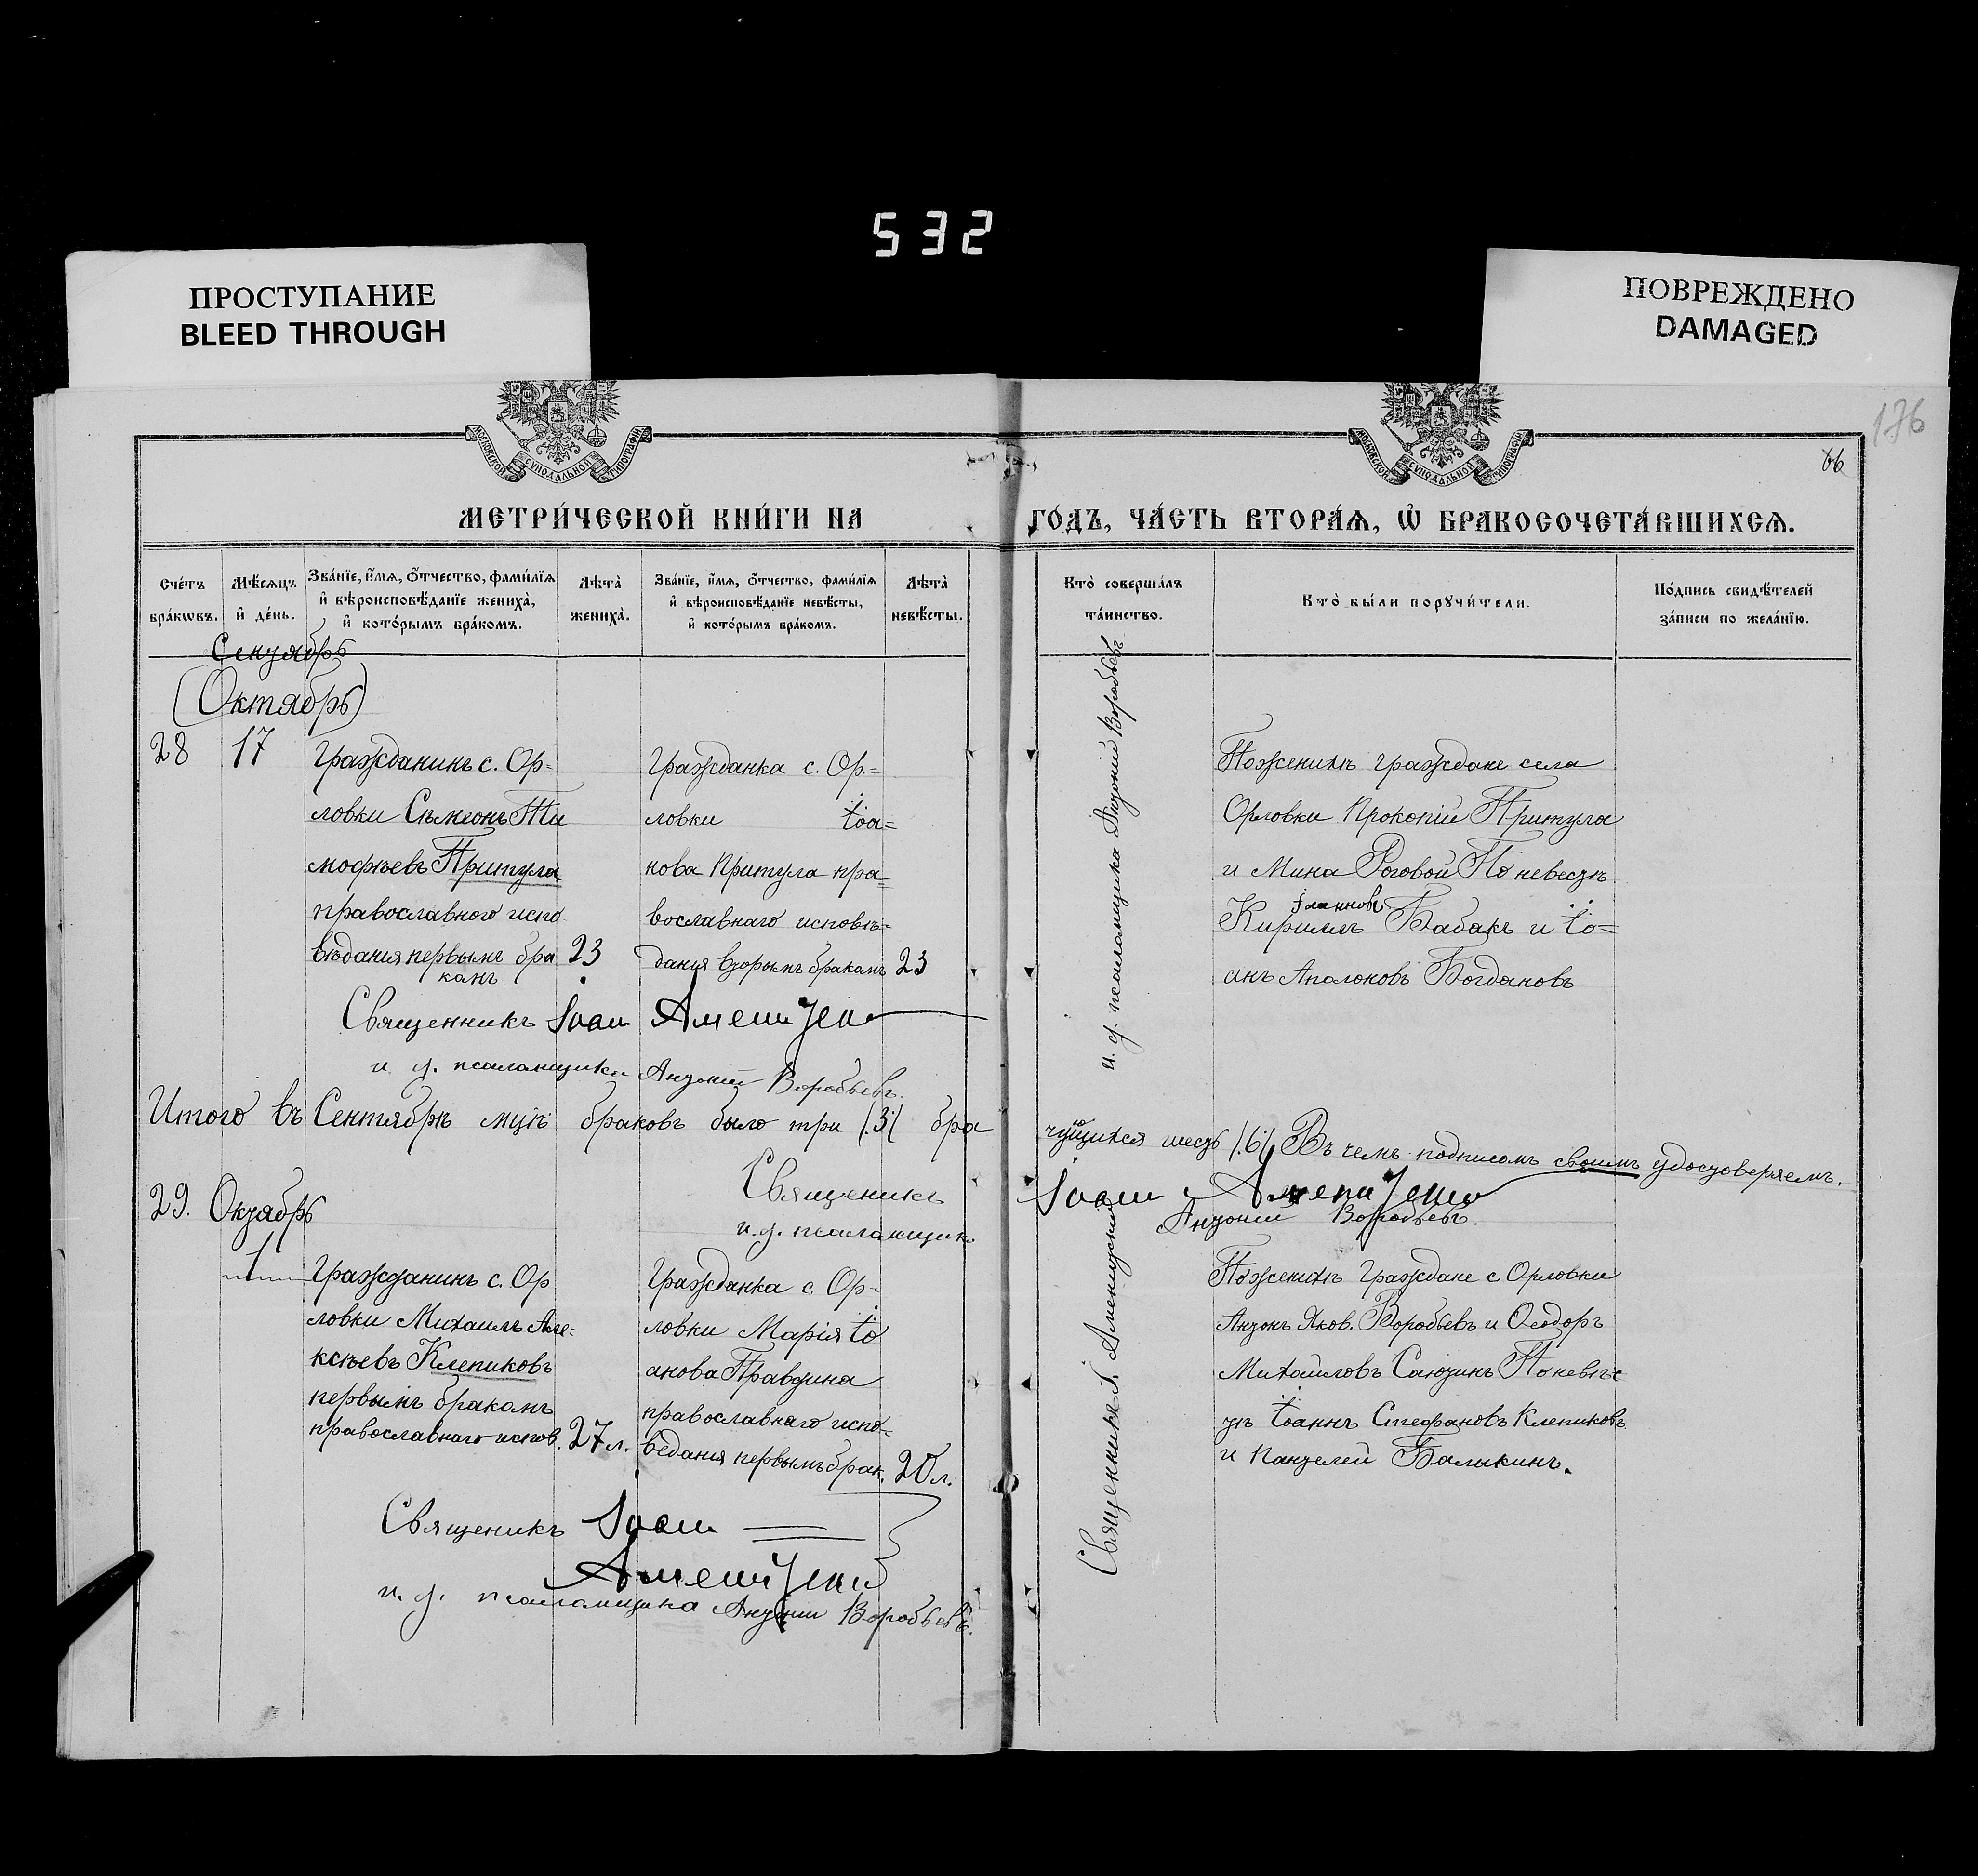 532
ПРОСТУПАНИЕ
BLEED THROUGH
ПОВРЕЖДЕНО
DAMAGED
МОСКОВСКОЙ СѴНОДАЛЬНОЙ ТИПОГРАФІИ
МОСКОВСКОЙ СѴНОДАЛЬНОЙ ТИПОГРАФІИ
176
66
МЕТРИ́ЧЕСКОЙ КНИ́ГИ НА
ГО́ДЪ, ЧА́СТЬ ВТОРА́Ѧ, Ѡ БРАКОСОЧЕТА́ВШИХСѦ.
Сче́тъ бра́кѡвъ.
Мѣ́сѧцъ и҆ де́нь.
Зва́нїе, и҆́мѧ, ѻ҆́тчество, фами́лїѧ и҆ вѣроисповѣ́данїе жениха̀, и҆ кото́рымъ бра́комъ.
Лѣта̀ жениха̀.
Зва́нїе, и҆́мѧ, ѻ҆́тчество, фами́лїѧ и҆ вѣроисповѣ́данїе невѣ́сты, и҆ кото́рымъ бра́комъ.
Лѣта̀ невѣ́сты.
Кто̀ соверша́лъ та́инство.
Кто̀ бы́ли порꙋчи́тели.
По́дпись свидѣ́телей за́писи по жела́нїю.
Сентябрь
(Октябрь)
28
17
Гражданинъ с. Ор=
ловки Сѵмеонъ Ти
мофѣевъ Притула
православного испо
вѣдания первымъ бра
камъ
23
Гражданка с. Ор=
ловки Іоа=
нова Притула пра=
вославнаго исповѣ=
дания вторымъ бракамъ
23
и. д. псаломщика Антоній Воробьевъ
По женихѣ граждане села
Орловки Прокопій Притула
и Мина Роговой По невестѣ
Іоанновъ
Кириллъ Бабакъ и Іо=
анъ Аполоновъ Богдановъ
Священникъ Іоан
и д. псаломщика Антоній Воробьевъ.
Итого въ Сентябрѣ мцѣ браковъ было три (3) бра
чущихся шесть (6) Въ чемъ подписомъ своимъ удостоверяемъ.
Священикъ Іоан
и. д. псаломщик. Антоній Воробьевъ.
29. Октябрь
1
Гражданинъ с. Ор
ловки Михаилъ Але=
ксѣевъ Клепиковъ
первымъ бракамъ
православнаго испов.
27 л.
Гражданка с. Ор=
ловки Марія Іо
анова Правдина
православнаго испо=
ведания первымъ брак.
20 л.
Священникъ І.
По женихѣ Граждане с Орловки
Антонъ Яков. Воробьевъ и Ѳеодоръ
Михайловъ Саюзинъ По невѣс
тѣ Іоаннъ Стефановъ Клепиковъ
и Пантелей Балыкинъ.
Священикъ Іоан
и. д. псаломщика Антоній Воробьевъ.